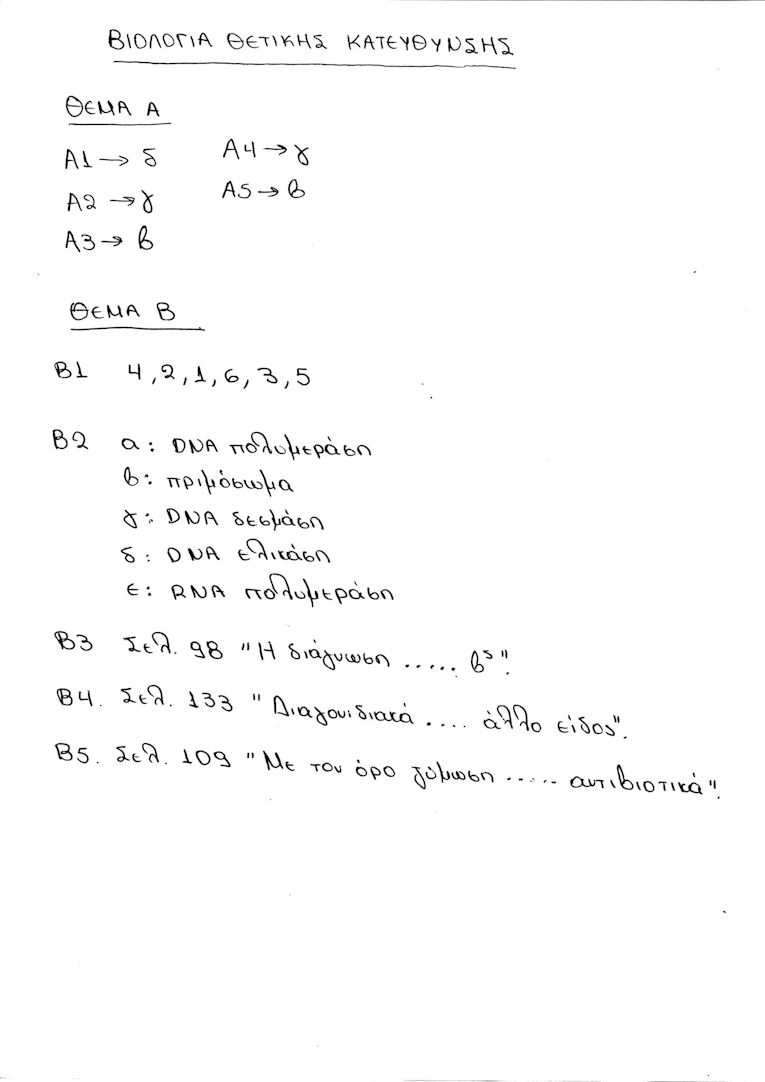 ΒΙΟΛΟΓΙΑ ΘΕΤΙΚΗΣ ΚΑΤΕΥΘΥΝΣΗΣ
ΘΕΜΑ Α
Α1 → δ
Α2 → γ
Α3 → β
Α4 → γ
Α5 → β
ΘΕΜΑ Β
Β1 4, 2, 1, 6, 3, 5
Β2 α: DNA πολυμεράση
β: πριμόσωμα
γ: DNA δεσμάση
δ: DNA ελικάση
ε: RNA πολυμεράση
Β3 Σελ. 98 "Η διάγνωση ..... βˢ".
Β4. Σελ. 133 "Διαγονιδιακά .... άλλο είδος".
Β5. Σελ. 109 "Με τον όρο ζύμωση ..... αντιβιοτικά".